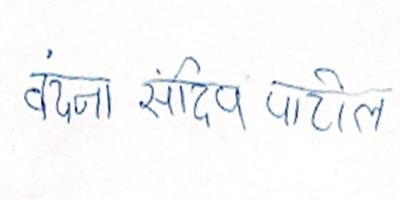 वंदना संदिप पाटील